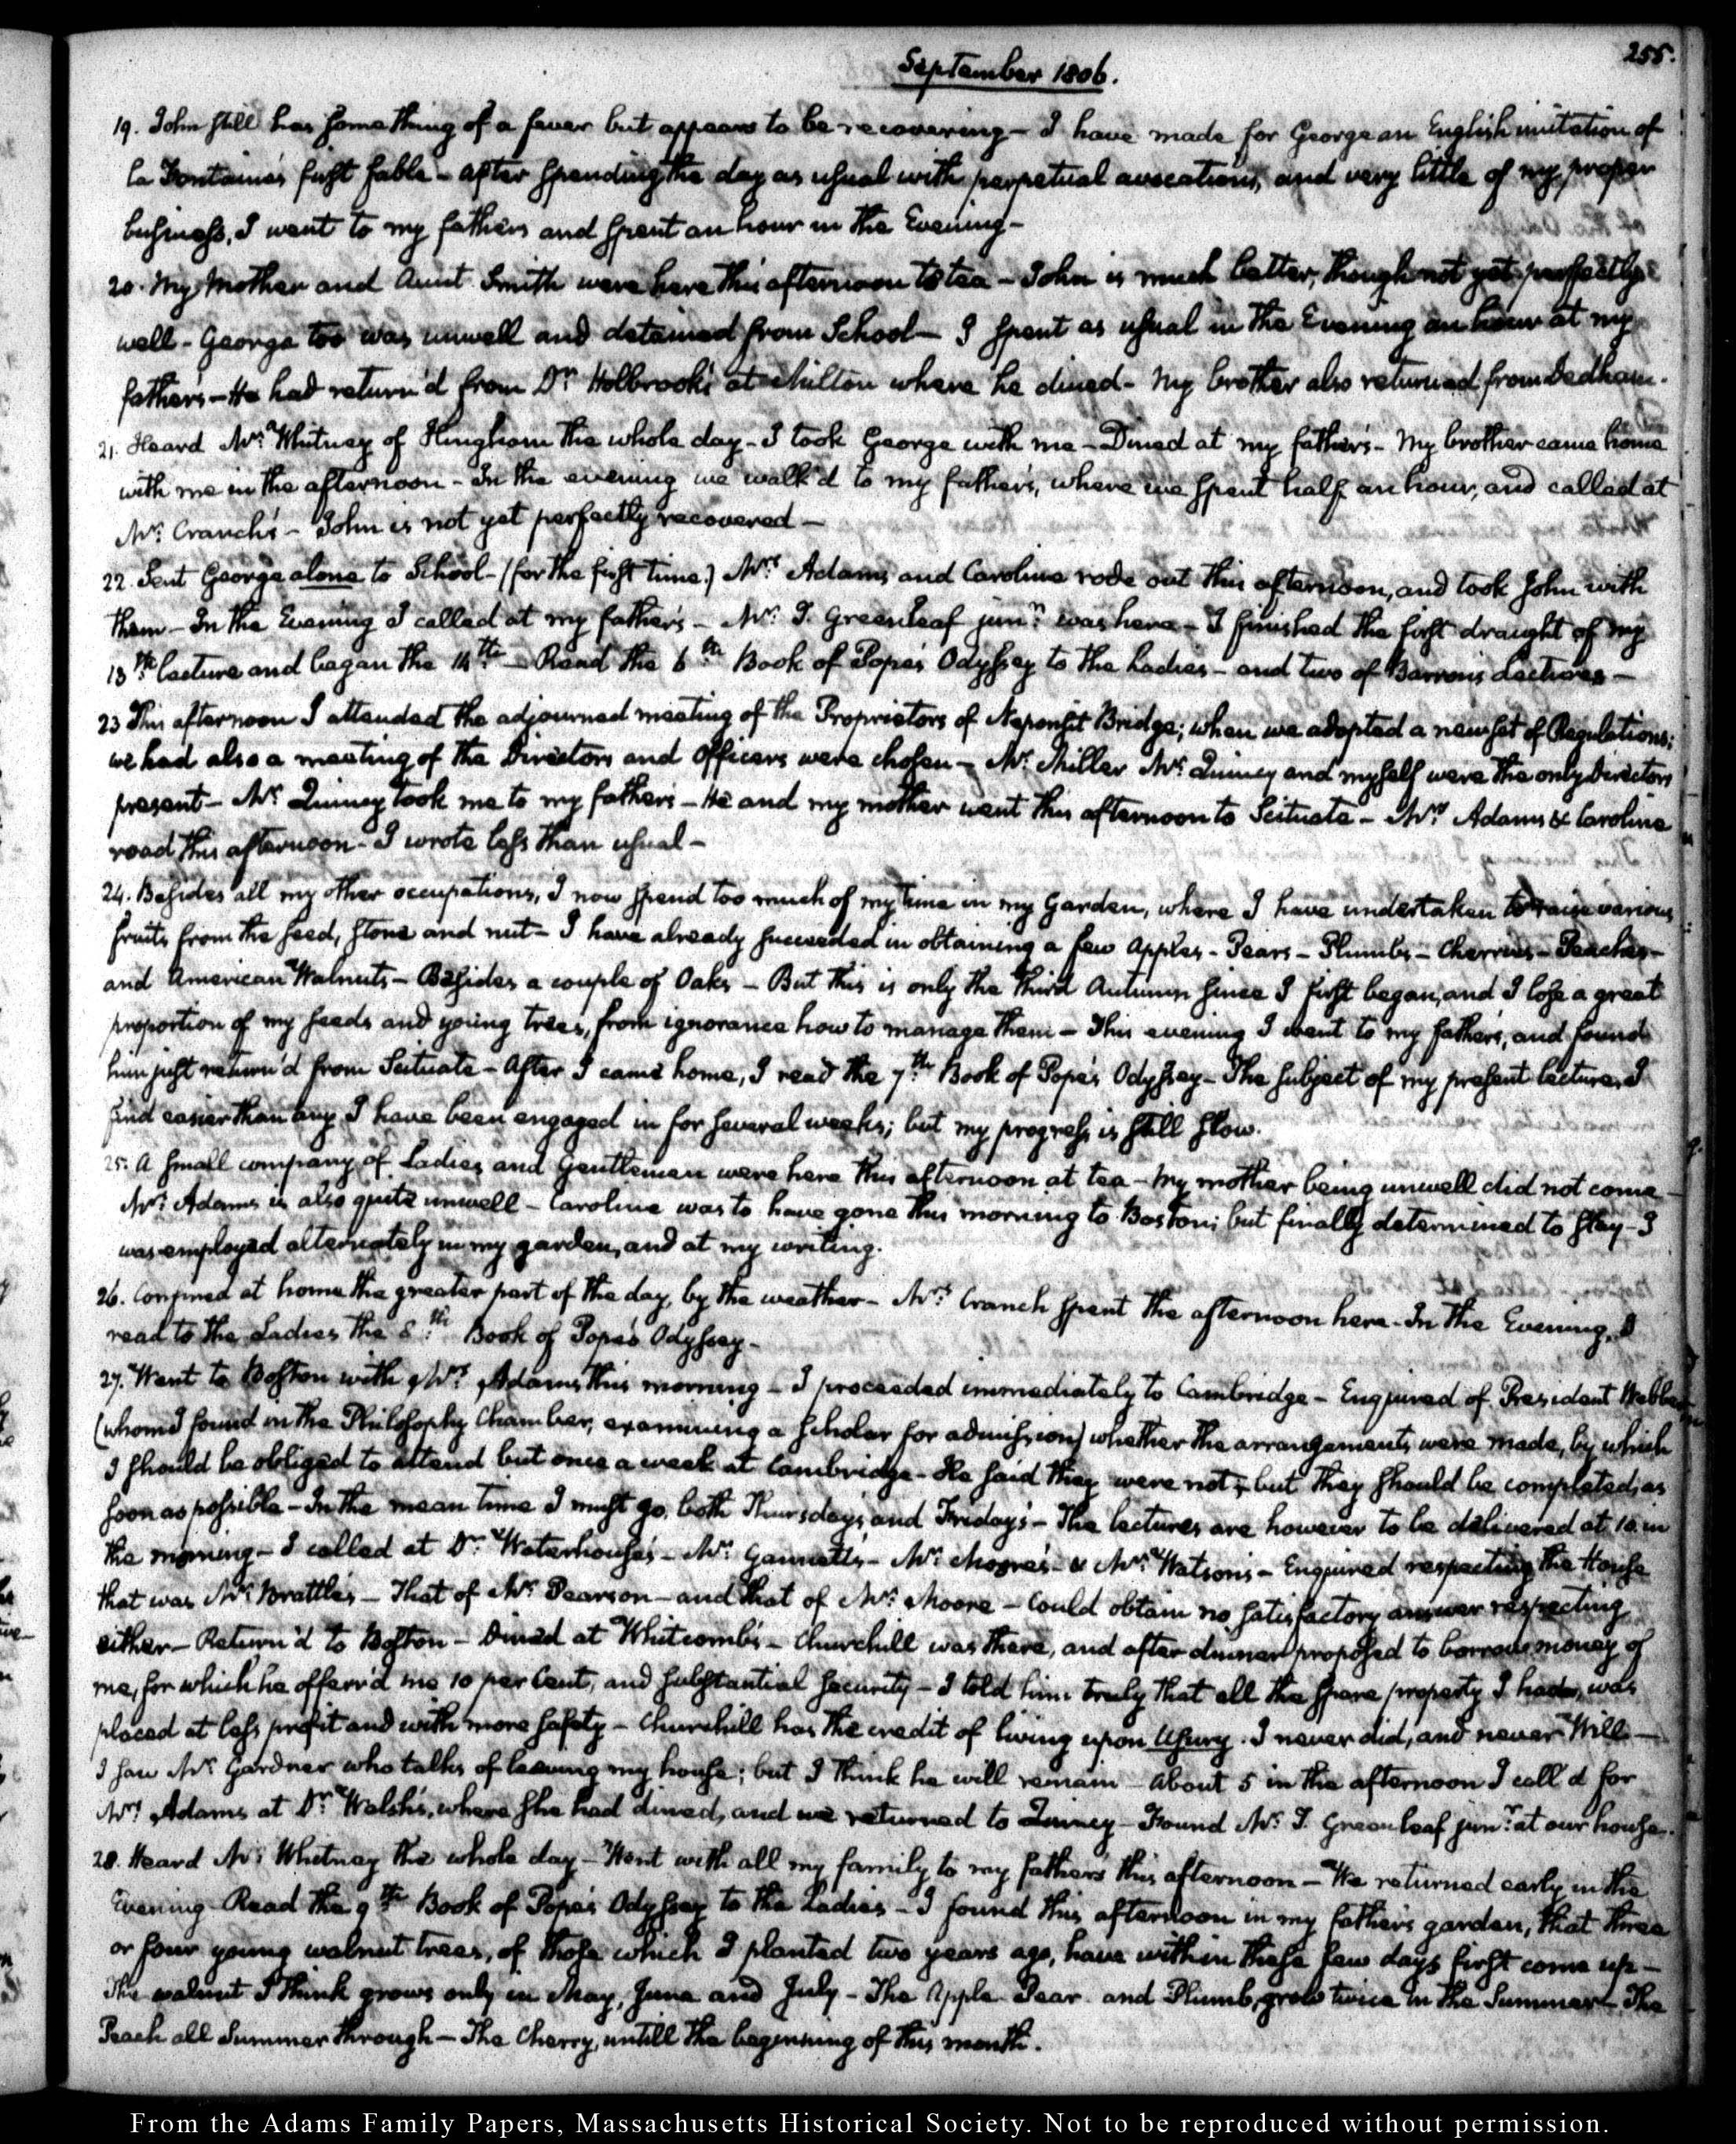 255.
September 1806.
19. John still has something of a fever but appears to be recovering – I have made for George an English imitation of
la Fontaine's first fable – After spending the day as usual with perpetual avocations, and very little of my proper
business, I went to my father's and spent an hour in the Evening –
20. My Mother and Aunt Smith were here this afternoon to tea – John is much better, though not yet perfectly
well – George too was unwell and detained from School – I spent as usual in the Evening an hour at my
father's – He had return'd from Dr. Holbrook's at Milton where he dined – My brother also returned from Dedham.
21. Heard Mr. Whitney of Hingham the whole day – I took George with me – Dined at my father's – My brother came home
with me in the afternoon – In the evening we walk'd to my father's, where we spent half an hour, and called at
Mr. Cranch's – John is not yet perfectly recovered –
22. Sent George alone to School – (for the first time) Mrs. Adams and Caroline rode out this afternoon, and took John with
them – In the Evening I called at my father's – Mr. T. Greenleaf junr. was here – I finished the first draught of my
13th. lecture and began the 14th. – Read the 6th. Book of Pope's Odyssey to the Ladies – and two of Barron's Lectures –
23 This afternoon I attended the adjourned meeting of the Proprietors of Neponsit Bridge; when we adopted a new set of Regulations;
we had also a meeting of the Directors and Officers were chosen – Mr. Miller Mr. Quincy and myself were the only Directors
present – Mr. Quincy took me to my father's – He and my mother went this afternoon to Scituate – Mrs. Adams & Caroline
road this afternoon – I wrote less than usual –
24. Besides all my other occupations, I now spend too much of my time in my Garden, where I have undertaken to raise various
fruits from the seed, stone and nut – I have already succeeded in obtaining a few Apples – Pears – Plumbs – Cherries – Peaches –
and American Walnuts – Besides a couple of Oaks – But this is only the third Autumn since I first began, and I lose a great
proportion of my seeds and young trees, from ignorance how to manage them – This evening I went to my father's, and found
him just return'd from Scituate – After I came home, I read the 7th. Book of Pope's Odyssey – The subject of my present lecture, I
find easier than any I have been engaged in for several weeks; but my progress is still slow.
25. A small company of Ladies and Gentlemen were here this afternoon at tea – My mother being unwell did not come –
Mrs. Adams is also quite unwell – Caroline was to have gone this morning to Boston; but finally determined to stay – I
was employed alternately in my garden, and at my writing.
26. Confined at home the greater part of the day, by the weather – Mrs. Cranch spent the afternoon here – In the Evening, I
read to the Ladies the 8th. Book of Pope's Odyssey –
27. Went to Boston with Mrs. Adams this morning – I proceeded immediately to Cambridge – Enquired of President Webber
(whom I found in the Philosophy Chamber, examining a scholar for admission) whether the arrangements were made, by which
I should be obliged to attend but once a week at Cambridge – He said they were not; but they should be completed, as
soon as possible – In the mean time I must go, both Thursday's and Friday's – The lectures are however to be delivered at 10 in
the morning – I called at Dr. Waterhouse's – Mr. Gannett's – Mr. Moore's – & Mr. Watson's – Enquired respecting the House
that was Mr. Brattle's – That of Mr. Pearson – and that of Mr. Moore – Could obtain no satisfactory answer respecting
either – Return'd to Boston – Dined at Whitcomb's – Churchill was there, and after dinner proposed to borrow money of
me, for which he offer'd me 10 per Cent, and substantial security – I told him truly that all the spare property I had, was
placed at less profit and with more safety – Churchill has the credit of living upon Usury. I never did, and never Will –
I saw Mr. Gardner who talks of leaving my house; but I think he will remain – About 5 in the afternoon I call'd for
Mrs. Adams at Dr. Welsh's, where she had dined, and we returned to Quincy – Found Mr. T. Greenleaf junr. at our house.
28. Heard Mr. Whitney the whole day – Went with all my family to my father's this afternoon – We returned early in the
Evening – Read the 9th. Book of Pope's Odyssey to the Ladies – I found this afternoon in my father's garden, that three
or four young walnut trees, of those which I planted two years ago, have within these few days first come up –
The walnut I think grows only in May, June and July – The Apple – Pear – and Plumb, grow twice in the Summer – The
Peach all Summer through – The Cherry, untill the beginning of this month.
From the Adams Family Papers, Massachusetts Historical Society. Not to be reproduced without permission.